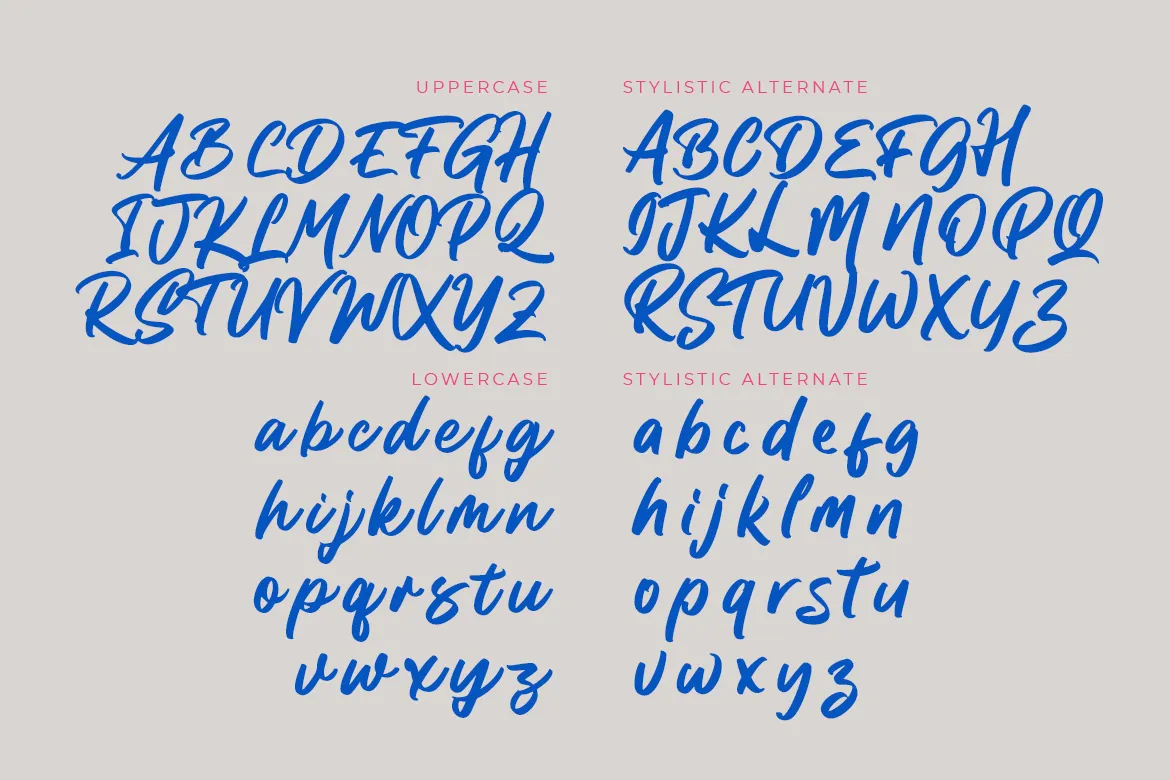 UPPERCASE
ABCDEFGH
IJKLMNOPQ
RSTUVWXYZ
STYLISTIC ALTERNATE
ABCDEFGH
IJKLMNOPQ
RSTUVWXYZ
LOWERCASE
abcdefg
hijklmn
opqrstu
vwxyz
STYLISTIC ALTERNATE
abcdefg
hijklmn
opqrstu
vwxyz